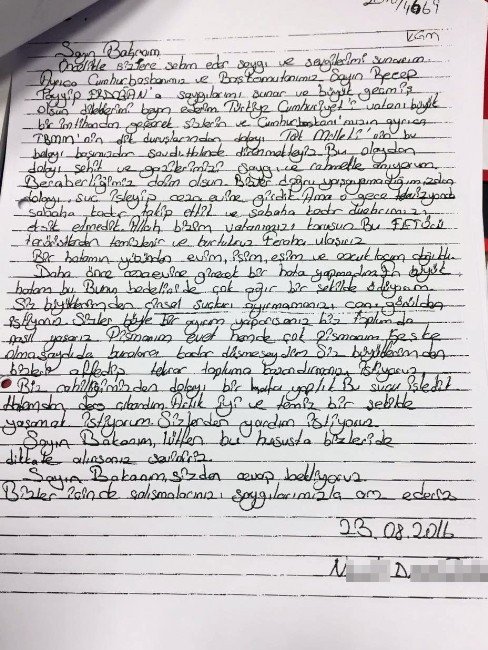 2016/4669
KGM
Sayın Bakanım
Öncelikle sizlere selam eder saygı ve sevgilerimi sunarım
Ayrıca Cumhurbaşkanımız ve Başkomutanımız Sayın Recep
Tayyip ERDOĞAN'a saygılarımı sunar ve büyük geçmiş
olsun dileklerimi beyan ederim Türkiye Cumhuriyeti vatanı büyük
bir imtihandan geçerek sizlerin ve Cumhurbaşkanı'mızın ayrıca
TBMM'nin dik duruşlarından dolayı Türk Milleti'nin bu
belayı başımızdan savdı Halinde direnmekteyiz Bu olaydan
dolayı şehit ve gazilerimizi saygı ve rahmetle anıyorum
Beraberliğimiz daim olsun Bizler doğru yaşayamadığımızdan
dolayı suç işleyip ceza evine girdik Ama o gece
sabaha kadar takip ettik ve sabaha kadar dualarımızı
eksik etmedik Allah bizim vatanımızı korusun Bu FETÖCÜ
teröristlerden temizlenir ve kurtulur Feraha ulaşırız
Bir hatamın yüzünden evim, işim, eşim ve dağıldı
Daha önce cezaevine girecek bir hata yapmadım En büyük
hatam bu Bunun bedelini de çok ağır bir şekilde ödüyorum
Siz büyüklerimden cinsel suçları ayırmamanızı canı gönülden
istiyoruz Sizler böyle bir ayırım yaparsanız biz toplumda
nasıl yaşarız Pişmanım evet hemde çok pişmanım Keşke
olmasaydıda buralara kadar düşmeseydim Siz büyüklerimden
bizleri affedip tekrar topluma kazandırmanızı istiyoruz
Biz cahilliğimizden dolayı bir hata yaptık Bu suçu işledik
Hatamdan ders çıkardım Artık iyi ve temiz bir şekilde
yaşamak istiyorum Sizlerden yardım istiyorum
Sayın Bakanım, lütfen bu hususta bizleride
dikkate alırsanız seviniriz
Sayın Bakanım, sizden cevap bekliyoruz
Bizler içinde çalışmalarınızı saygılarımızla arz ederiz
23.08.2016